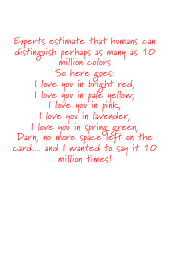 Experts estimate that humans can
distinguish perhaps as many as 10
million colors.
So here goes:
I love you in bright red,
I love you in pale yellow,
I love you in pink,
I love you in lavender,
I love you in spring green,
Darn, no more space left on the
card.... and I wanted to say it 10
million times!